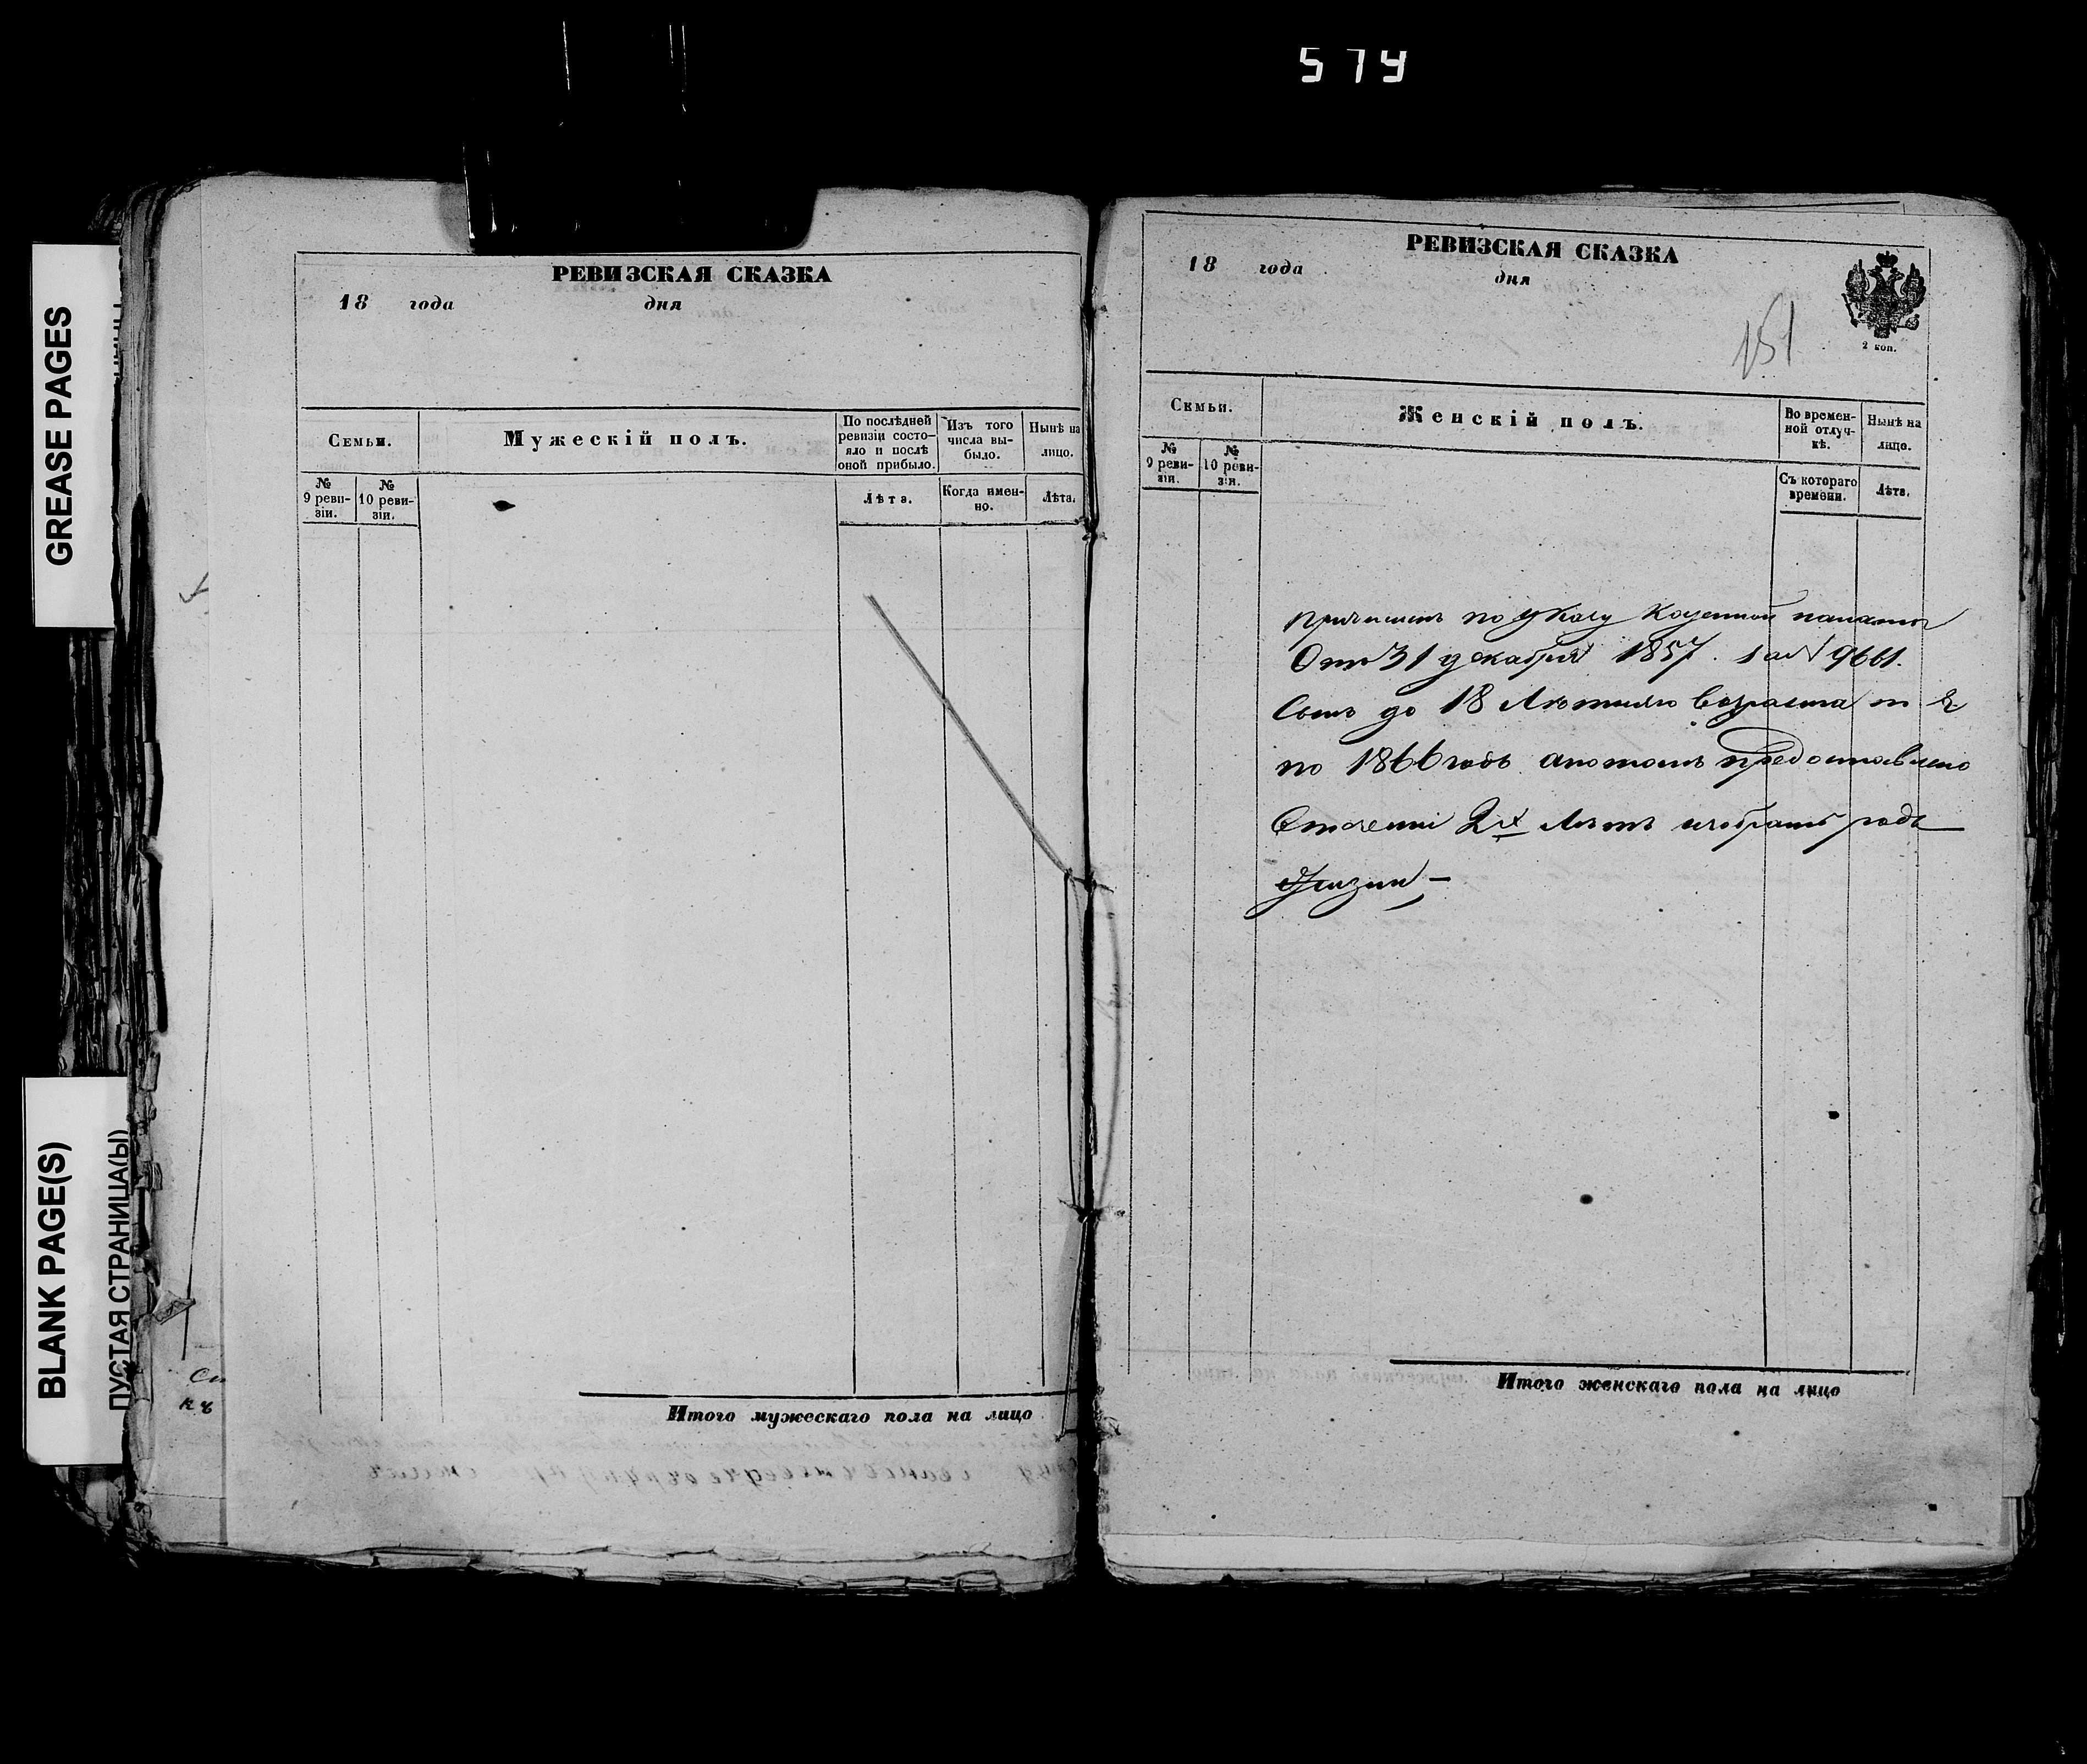 574
GREASE PAGES
BLANK PAGE(S)
ПУСТАЯ СТРАНИЦА(Ы)
РЕВИЗСКАЯ СКАЗКА
18 года дня
Семьи.
Мужескій полъ.
По послѣдней ревизіи состо-
яло и послѣ оной прибыло.
Изъ того числа вы-
было.
Нынѣ на лицо.
№ 9 реви-
зіи.
№ 10 реви-
зіи.
Лѣта.
Когда имен-
но.
Лѣта.
Итого мужескаго пола на лицо
РЕВИЗСКАЯ СКАЗКА
18 года
дня
151
2 коп.
Семьи.
Женскій полъ.
Во времен-
ной отлуч-
кѣ.
Нынѣ на лицо.
№ 9 реви-
зіи.
№ 10 реви-
зіи.
Съ котораго времени.
Лѣта.
причисленъ по указу Казенной палаты
Отъ 31 декабря 1857. за № 9661.
до 18 Лѣтняго возраста т е
по 1866 годъ апотомъ предоставлено
Втечении 2х Лѣтъ избрать родъ
Жизни —
Итого женскаго пола на лицо